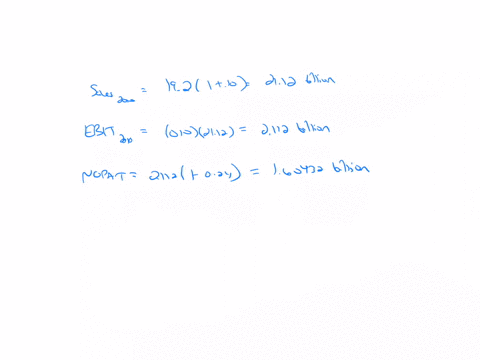 Sales 2020 = 19.2 ( 1 + .10 ) = 21.12 billion
EBIT 2020 = (0.10)(21.12) = 2.112 billion
NOPAT = 2.112 ( 1 - 0.24 ) = 1.60512 billion